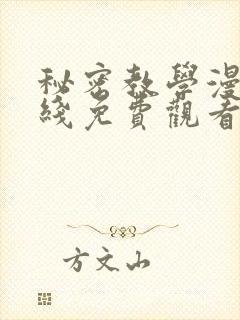 秘密教學漫
綫免費觀看
方文山